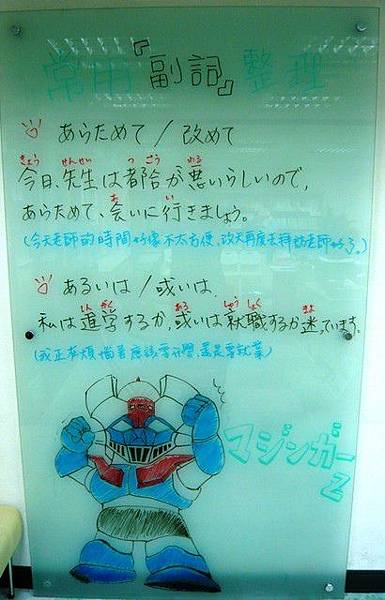 常用『副詞』整理
あらためて / 改めて
きょう せんせい つごう わる
今日、先生は都合が悪いらしいので、
あ い
あらためて、会いに行きましょう。
(今天老師的時間好像不太方便，改天再度去拜訪老師好了。)
あるいは / 或いは、
しんがく ある しゅうしょく まよ
私は進学するか、或いは就職するか迷っています。
(我正煩惱著應該要升學，還是要就業)
マジンガー
Z